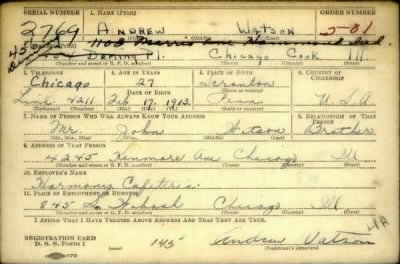 SERIAL NUMBER 1. NAME (Print) ORDER NUMBER
2769 ANDREW WATSON 5-81
(First) (Middle) (Last)
1108
456 Deming Pl. Chicago Cook Ill.
(Number and street or R. F. D. number) (Town) (County) (State)
3. TELEPHONE 4. AGE IN YEARS 5. PLACE OF BIRTH 6. COUNTRY OF CITIZENSHIP
Chicago 27 Scranton
DATE OF BIRTH (Town or county)
Linc. 4211 Feb. 17, 1913 Penn U.S.A.
(Exchange) (Number) (Mo.) (Day) (Yr.) (State or country)
7. NAME OF PERSON WHO WILL ALWAYS KNOW YOUR ADDRESS 8. RELATIONSHIP OF THAT PERSON
Mr. John Watson Brother
(Mr., Mrs., Miss) (First) (Middle) (Last)
9. ADDRESS OF THAT PERSON
4245 Kenmore Ave Chicago Ill
(Number and street or R. F. D. number) (Town) (County) (State)
10. EMPLOYER'S NAME
Harmony Cafeteria
11. PLACE OF EMPLOYMENT OR BUSINESS
845 So Wabash Chicago Ill
(Number and street or R. F. D. number) (Town) (County) (State)
I AFFIRM THAT I HAVE VERIFIED ABOVE ANSWERS AND THAT THEY ARE TRUE.
REGISTRATION CARD
D. S. S. Form 1 145 Andrew Watson
(Registrant's signature)